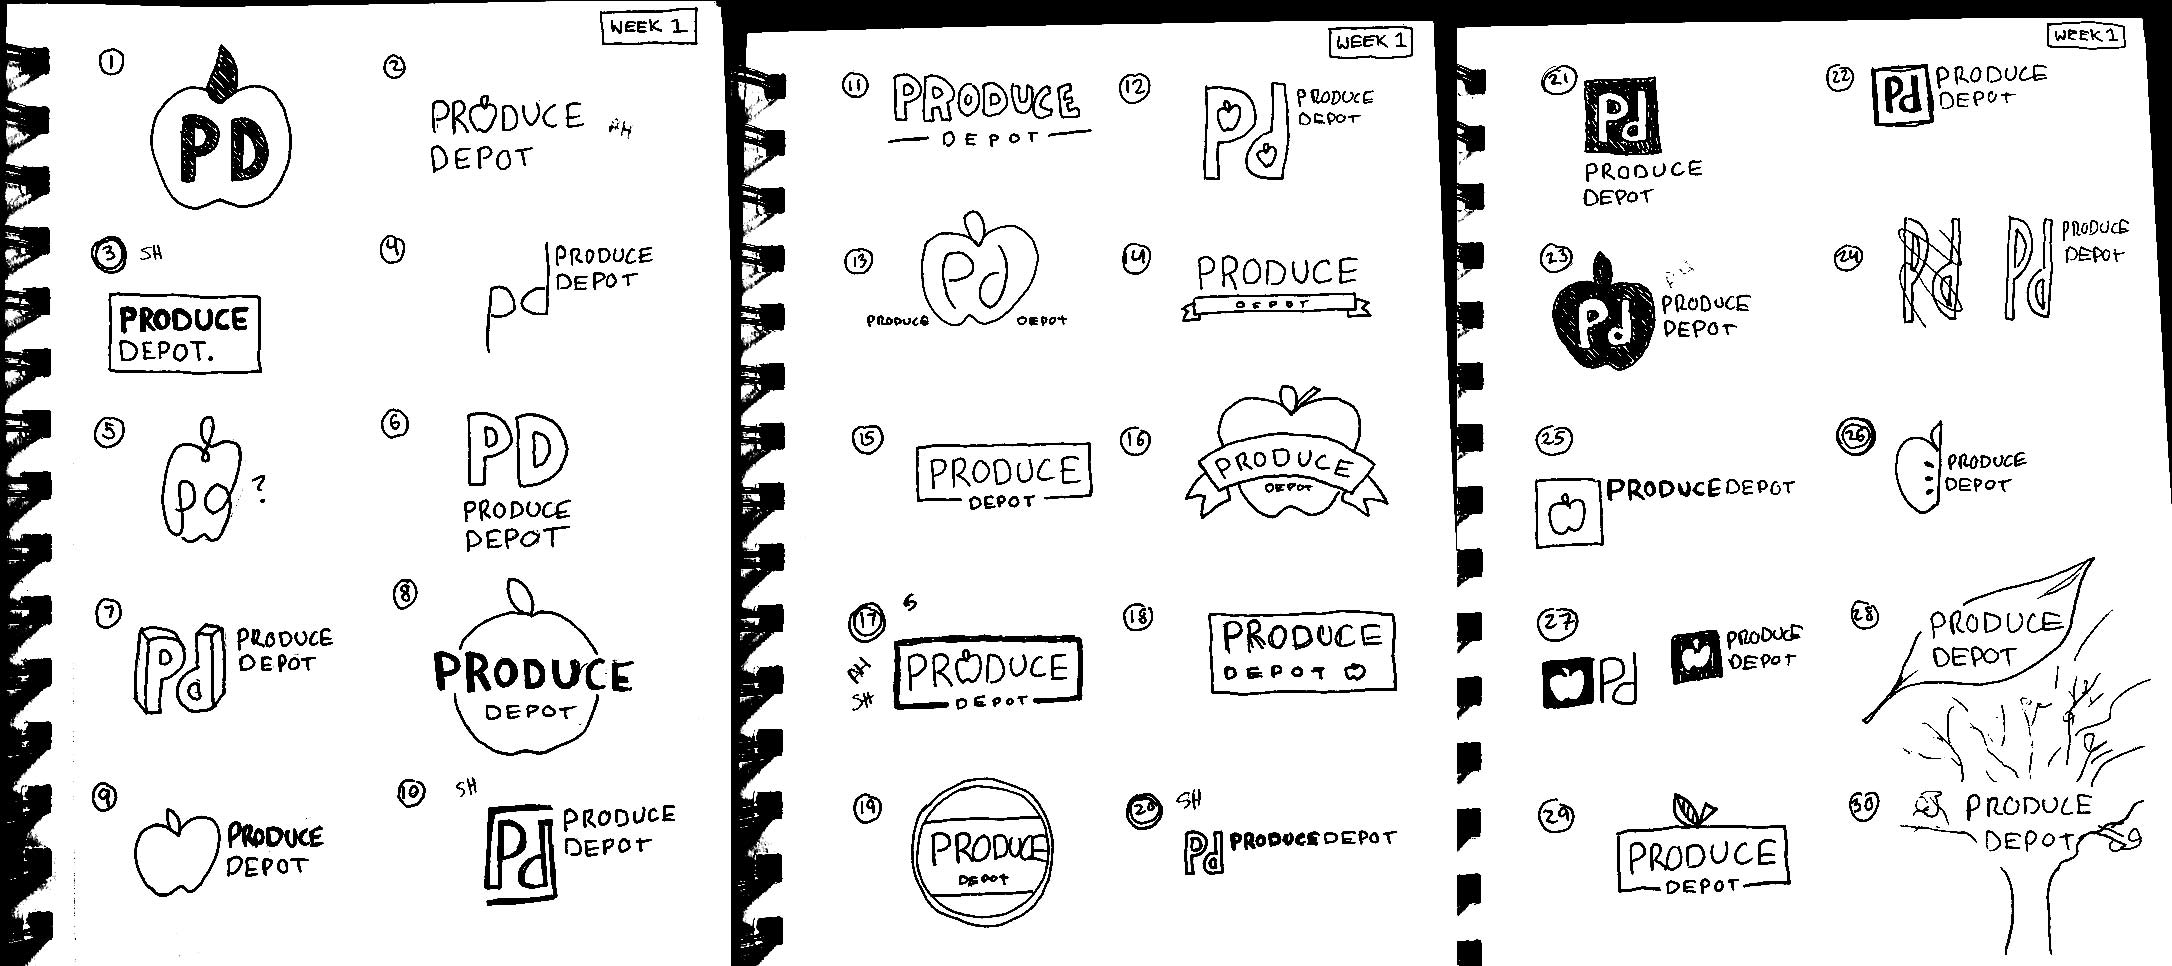 WEEK 1
1
PD
2
PRODUCE
DEPOT
AH
3
SH
PRODUCE
DEPOT.
4
pd
PRODUCE
DEPOT
5
pd
?
6
PD
PRODUCE
DEPOT
7
Pd
PRODUCE
DEPOT
8
PRODUCE
DEPOT
9
PRODUCE
DEPOT
10
SH
Pd
PRODUCE
DEPOT
WEEK 1
11
PRODUCE
DEPOT
12
Pd
PRODUCE
DEPOT
13
Pd
PRODUCE DEPOT
14
PRODUCE
DEPOT
15
PRODUCE
DEPOT
16
PRODUCE
DEPOT
17
S
AH
SH
PRODUCE
DEPOT
18
PRODUCE
DEPOT
19
PRODUCE
DEPOT
20
SH
Pd PRODUCE DEPOT
WEEK 1
21
Pd
PRODUCE
DEPOT
22
Pd
PRODUCE
DEPOT
23
Pd
PRODUCE
DEPOT
24
Pd
Pd
PRODUCE
DEPOT
25
PRODUCE DEPOT
26
PRODUCE
DEPOT
27
Pd
PRODUCE
DEPOT
28
PRODUCE
DEPOT
29
PRODUCE
DEPOT
30
PRODUCE
DEPOT